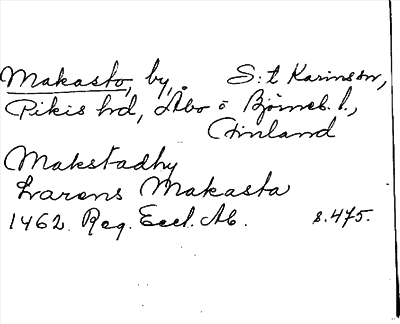 Makasto, by, S:t Karins sn,
Pikis hd, Åbo o Björneb. l.,
Finland
Makstadhy
Larens Makasta
1462. Reg. Eccl. Ab. s. 475.